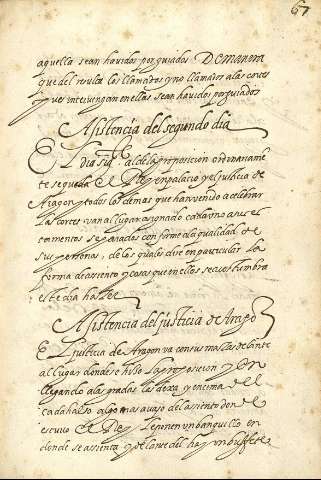 67
aquella sean havidos por guiados De manera
que del resulta los llamados y no llamados a las cortes
que intervengan en ellas sean havidos por guiados
Assistencia del segundo dia
El dia sig.te al de la proposicion ordinariame
te se queda El Rey en palacio y el justicia de
Aragon y todos los demas que han venido a celebrar
las cortes van al lugar asignado cada uno a su es
tamentos separados conforme a la qualidad de
sus personas, de los quales dire en particular la
forma de asiento y cosas que en ellos se acostumbra
este dia hazer
Assistencia del justicia de Aragō
El justicia de Aragon va con sus maças delante
al lugar donde se hizo la proposicion y en
llegando a las gradas las dexa y encima del
cadahalso algo mas avajo del asiento don de
estuvo el Rey le ponen un banquillo en
donde se assienta y delante del hay un bufete